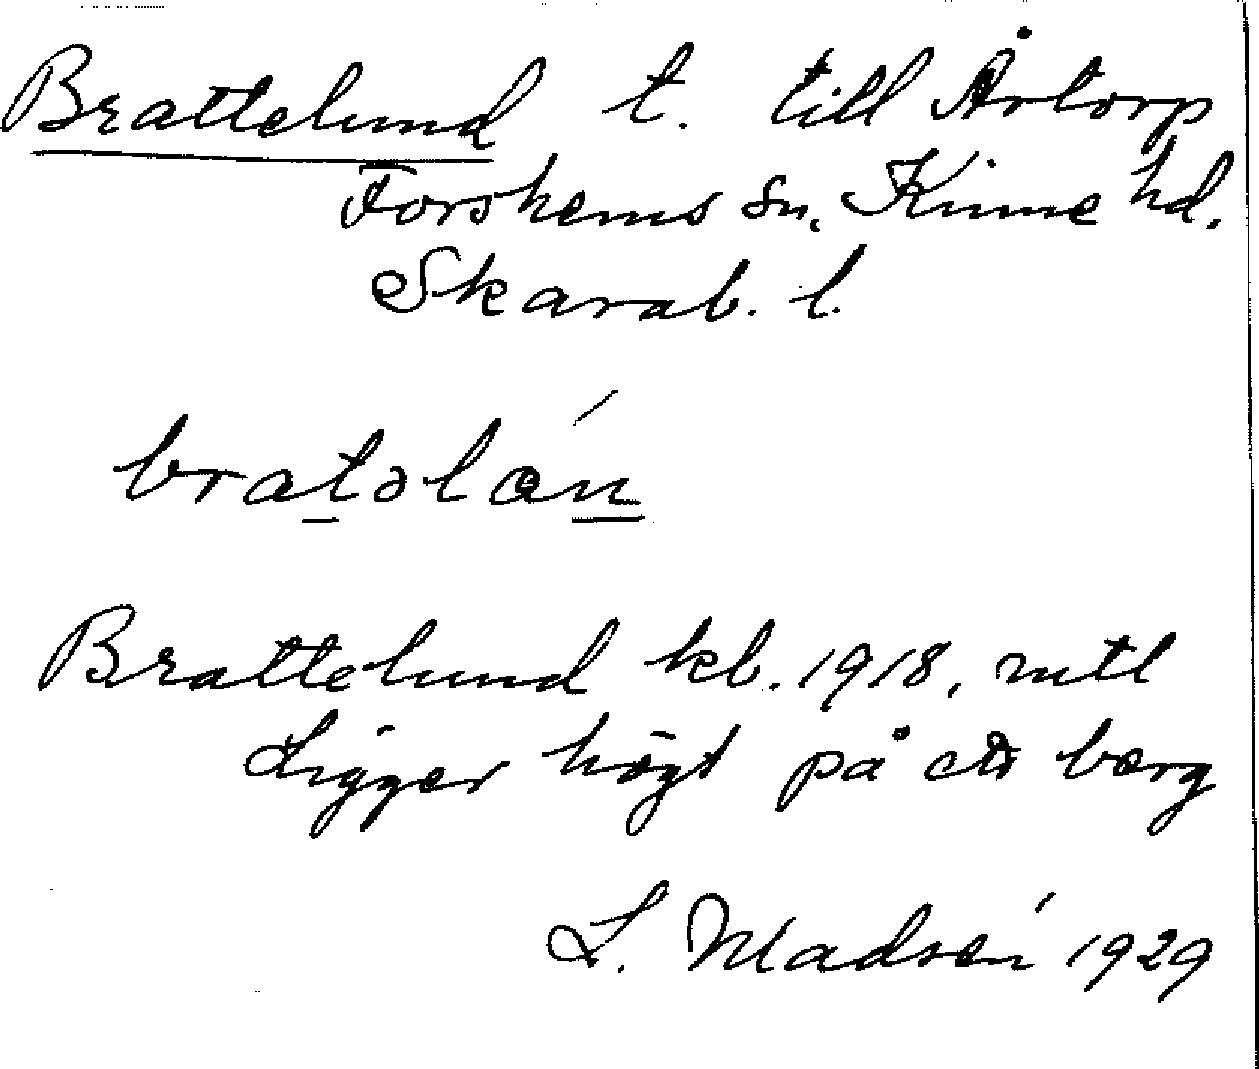 Brattelund t. till Årtorp
Forshems sn. Kinne hd.
Skarab. l.
bratəlán
Brattelund kb. 1918, mtl
Ligger högt på ett berg
L. Madsén 1929